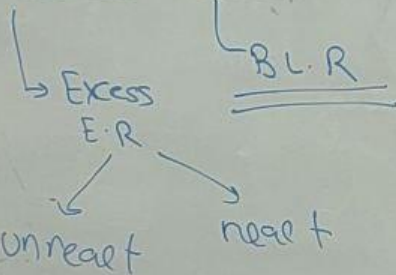 B L. R
Excess
E. R
unreact
react